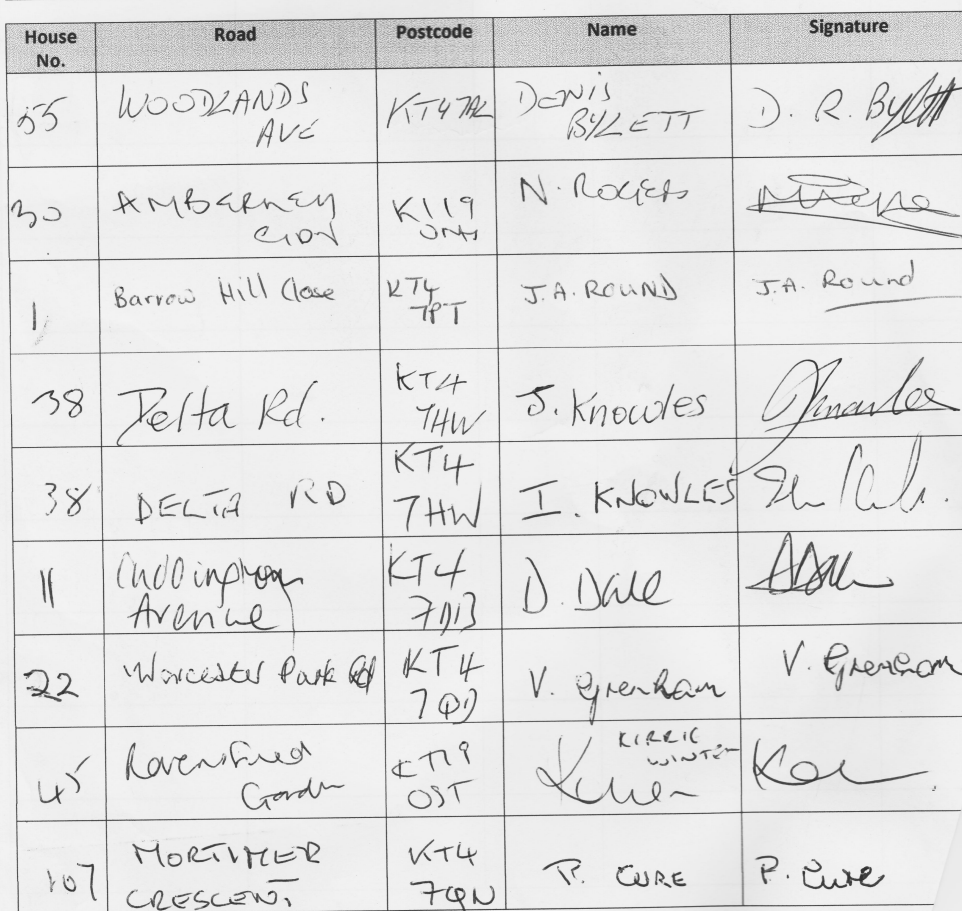 House No. Road Postcode Name Signature
55 WOODLANDS AVE KT4 7AL DENIS BYLETT D. R. Bylett
30 AMBERLEY KT19 N. ROGERS
1 Barrow Hill Close KT4 7PT J.A. ROUND J.A. Round
38 Delta Rd. KT4 7HW J. Knowles JKnowles
38 DELTA RD KT4 7HW I. KNOWLES
11 Cuddington Avenue KT4 7DB D. Dale
22 Worcester Park Rd KT4 7QD V. Grenham V. Grenham
45 Ravensfield Garden KT19 0ST KIRRIE WINTER
107 MORTIMER CRESCENT, KT4 7QN P. CURE P. Cure